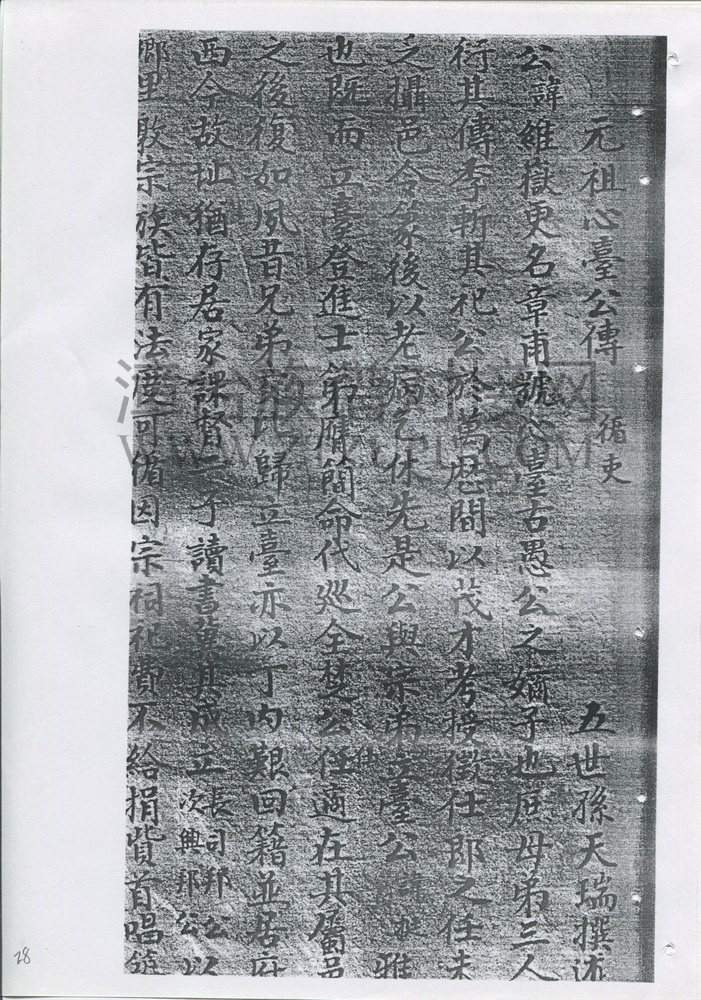 元祖心臺公傳 循吏 五世孫天瑞撰述
公諱維嶽更名章甫號心臺古愚公之嫡子也庶母弟三人
衍其傳季斬其祀公於萬厯間以茂才考授徵仕郎之任未
乏攝邑令篆後以老病乞休先是公與宗弟立臺公諱 雅
也既而立臺登進士第膺簡命代巡全楚公任適在其屬邑
之後復如夙昔兄弟 比歸立臺亦以丁內艱回籍並居府
西今故址猶存居家課督二子讀書 其成立長司邦公以
次興邦公
鄉里敦宗族皆有法度可循因宗祠祀費不給捐貲首唱
WWW.
.COM
28